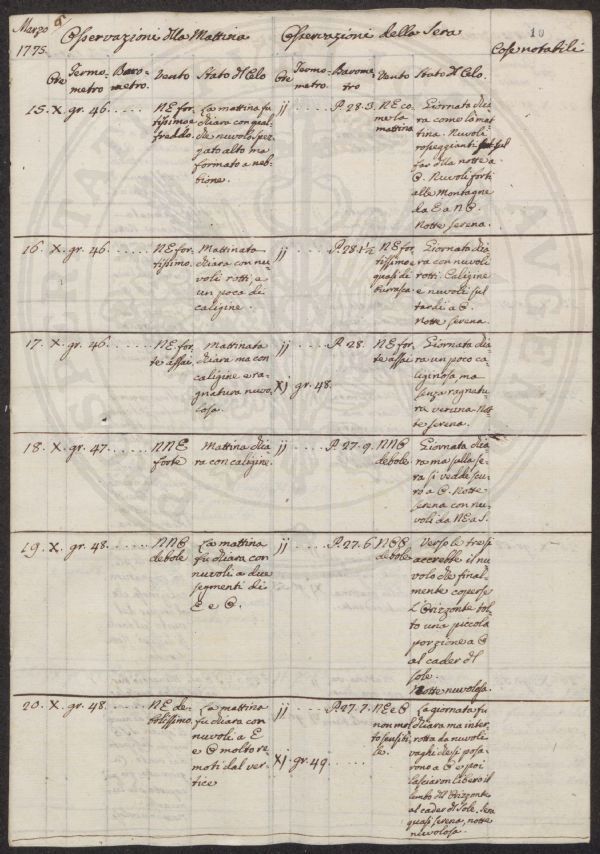 Marzo
1775.
Osservazioni dlla Mattina
Osservazioni della Sera
10
Cose notabili
Ore
Termo-
metro
Baro-
metro.
Vento
Stato dl Celo.
Ore
Termo-
metro.
Barome-
tro
Vento
Stato dl Celo.
15. X. gr. 46. . . . .
NE for-
tissimo e
freddo.
La mattina fu
chiara con qual-
che nuvolo spez-
zato alto ma
formato a neb-
bione.
jj . . . . P. 28. 3.
NE co-
me la
mattina
Giornata chia-
ra come la mat-
tina. Nuvoli
rosseggianti sul
far dlla notte a
O. Nuvoli forti
alle Montagne
da E a N O.
Notte serena.
16. X. gr. 46. . . . .
NE for-
tissimo.
Mattinata
chiara con nu-
voli rotti, e
un poco di
caligine.
jj . . . . P. 28. 1½
NE for-
tissimo e
quasi di
burrasca.
Giornata chia-
ra con nuvoli
rotti. Caligine
e nuvoli sul
tardi a O.
Notte serena.
17. X. gr. 46. . . . .
NE for-
te assai.
Mattinata
chiara ma con
caligine e ra-
gnatura nuvo-
losa.
jj . . . . P. 28.
XJ gr. 48.
NE for-
te assai
Giornata chia-
ra un poco ca-
liginosa, ma
senza ragnatu-
ra veruna. Not-
te serena.
18. X. gr. 47. . . . .
NNE
forte
Mattina chia-
ra con caligine.
jj . . . . P. 27. 9.
NNE
debole.
Giornata chia-
ra ma sulla se-
ra si vedde scu-
ro a O. Notte
serena con nu-
voli da NE a S.
19. X. gr. 48. . . . .
NNE
debole.
La mattina
fu chiara con
nuvoli a due
segmenti di
E e O.
jj . . . . P. 27. 6.
NEE
debole.
Verso le tre si
accrebbe il nu-
volo che final-
mente coperse
l'Orizzonte tol-
to una piccola
porzione a O
al cader dl
sole.
Notte nuvolosa.
20. X. gr. 48. . . . .
NE de-
bolissimo.
La mattina
fu chiara con
nuvoli a E
e O molto re-
moti dal ver-
tice
jj . . . . P. 27. 7.
XJ. gr. 49 . . . .
NE e O
non mol-
to sensibi-
le.
La giornata fu
chiara ma inter-
rotta da nuvoli
vaghi che si posa-
rono a O e poi
lasciaron libero il
lembo dll'Orizzonte
al cader dl Sole. Sera
quasi serena, notte
nuvolosa.